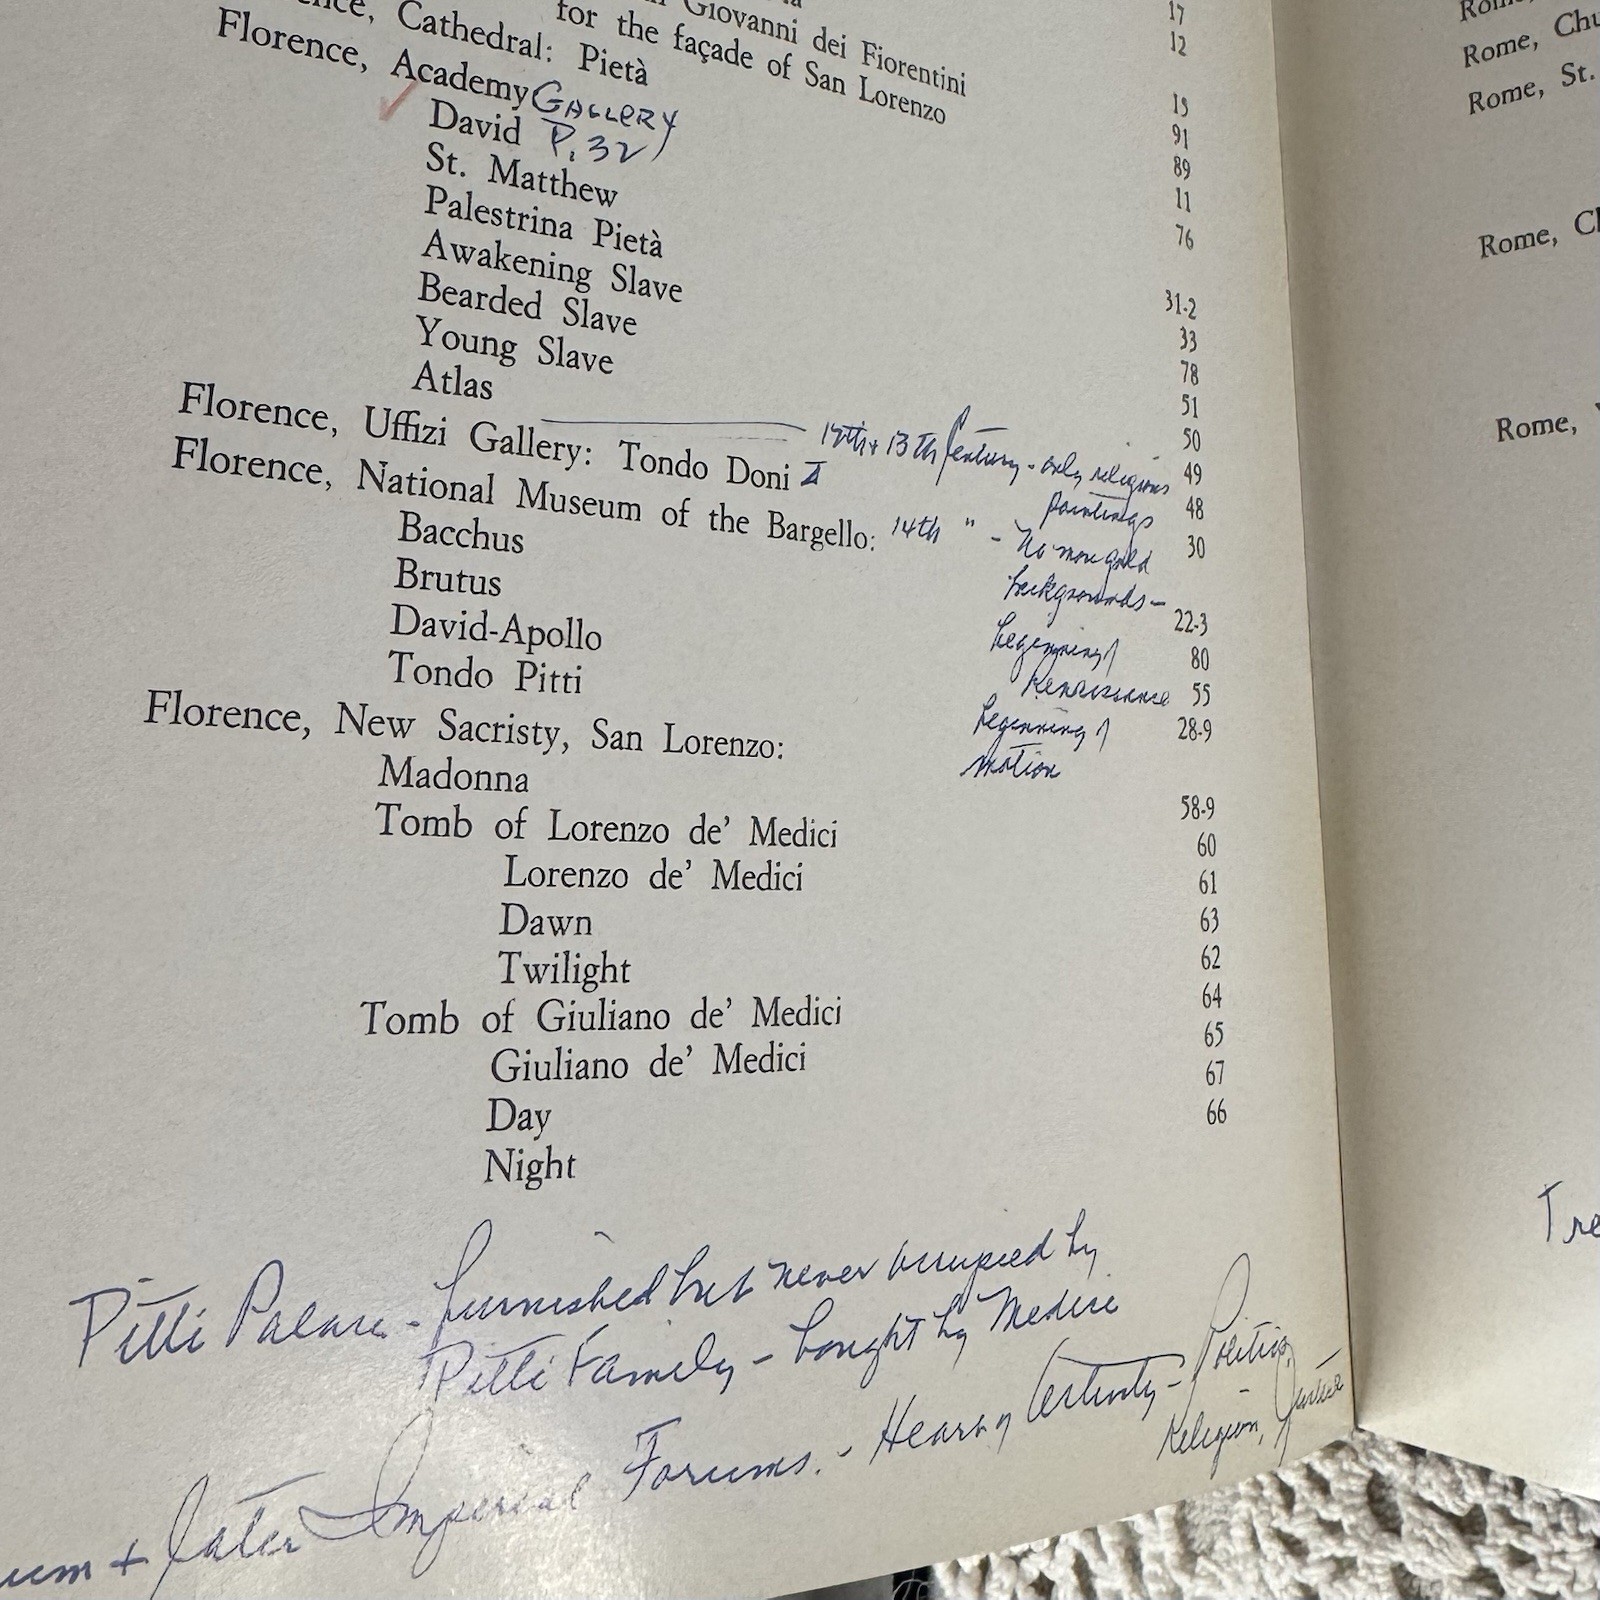 Giovanni dei Fiorentini
for the façade of San Lorenzo
Cathedral: Pietà
Florence, Academy GALLERY
David P. 32
St. Matthew
Palestrina Pietà
Awakening Slave
Bearded Slave
Young Slave
Atlas
Florence, Uffizi Gallery: Tondo Doni
Florence, National Museum of the Bargello:
Bacchus
Brutus
David-Apollo
Tondo Pitti
Florence, New Sacristy, San Lorenzo:
Madonna
Tomb of Lorenzo de' Medici
Lorenzo de' Medici
Dawn
Twilight
Tomb of Giuliano de' Medici
Giuliano de' Medici
Day
Night
17
12
15
91
89
11
76
31-2
33
78
51
50
49
48
30
22-3
80
55
28-9
58-9
60
61
63
62
64
65
67
66
12th + 13th Century - only religious
paintings
14th " - No more gold
backgrounds -
beginning of
Renaissance
beginning of
motion
Pitti Palace - furnished but never occupied by
Pitti Family - bought by Medici
+ later Imperial Forums. - Heart of Activity - Politics,
Religion, Justice
Rome,
Rome, Chu
Rome, St.
Rome, Ch
Rome,
Tre